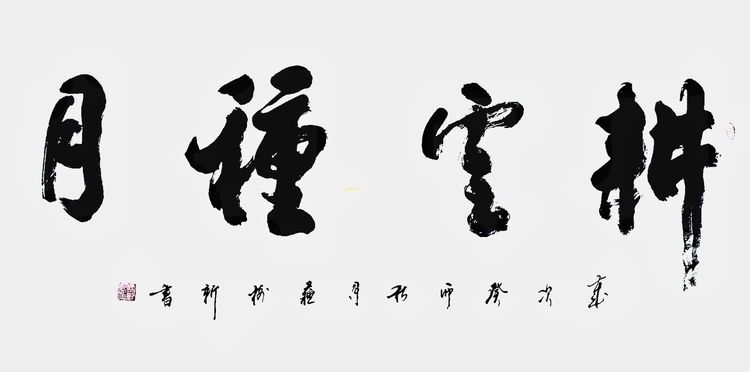 耕雲種月
歲次癸卯秋月蘇梅新書